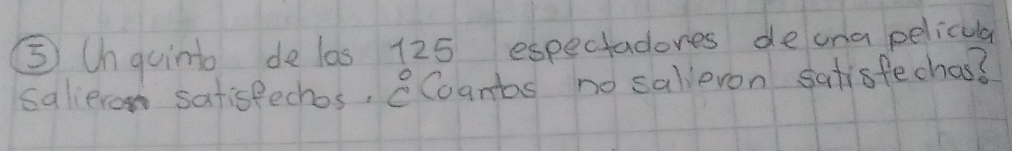 ⑤ Un quinto de las 125 espectadores de una pelicula
salieron satisfechos. ¿Coantos no salieron satisfechas?